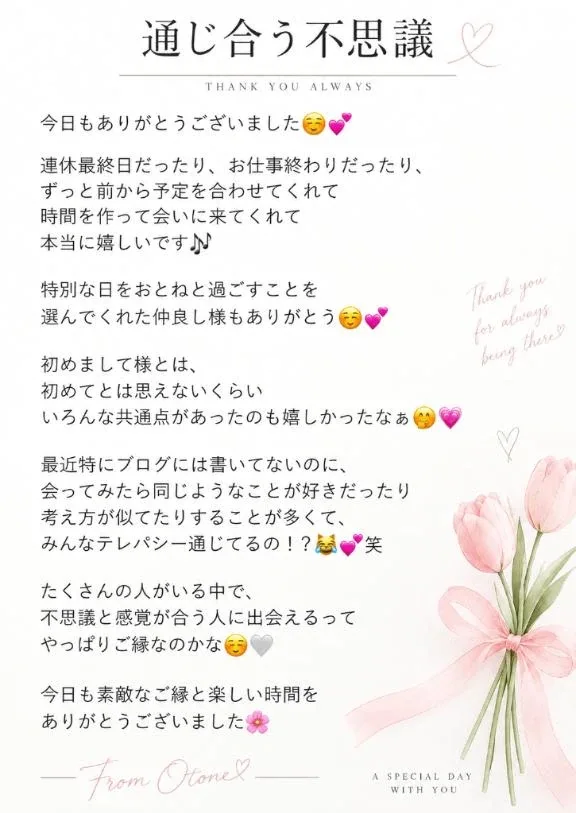 通じ合う不思議
THANK YOU ALWAYS
今日もありがとうございました☺️💕
連休最終日だったり、お仕事終わりだったり、
ずっと前から予定を合わせてくれて
時間を作って会いに来てくれて
本当に嬉しいです🎶
特別な日をおとねと過ごすことを
選んでくれた仲良し様もありがとう☺️💕
Thank you
for always
being there♡
初めまして様とは、
初めてとは思えないくらい
いろんな共通点があったのも嬉しかったなぁ🤭💗
最近特にブログには書いてないのに、
会ってみたら同じようなことが好きだったり
考え方が似てたりすることが多くて、
みんなテレパシー通じてるの！？😹💕笑
たくさんの人がいる中で、
不思議と感覚が合う人に出会えるって
やっぱりご縁なのかな☺️🩶
今日も素敵なご縁と楽しい時間を
ありがとうございました🌸
From Otone♡
A SPECIAL DAY
WITH YOU